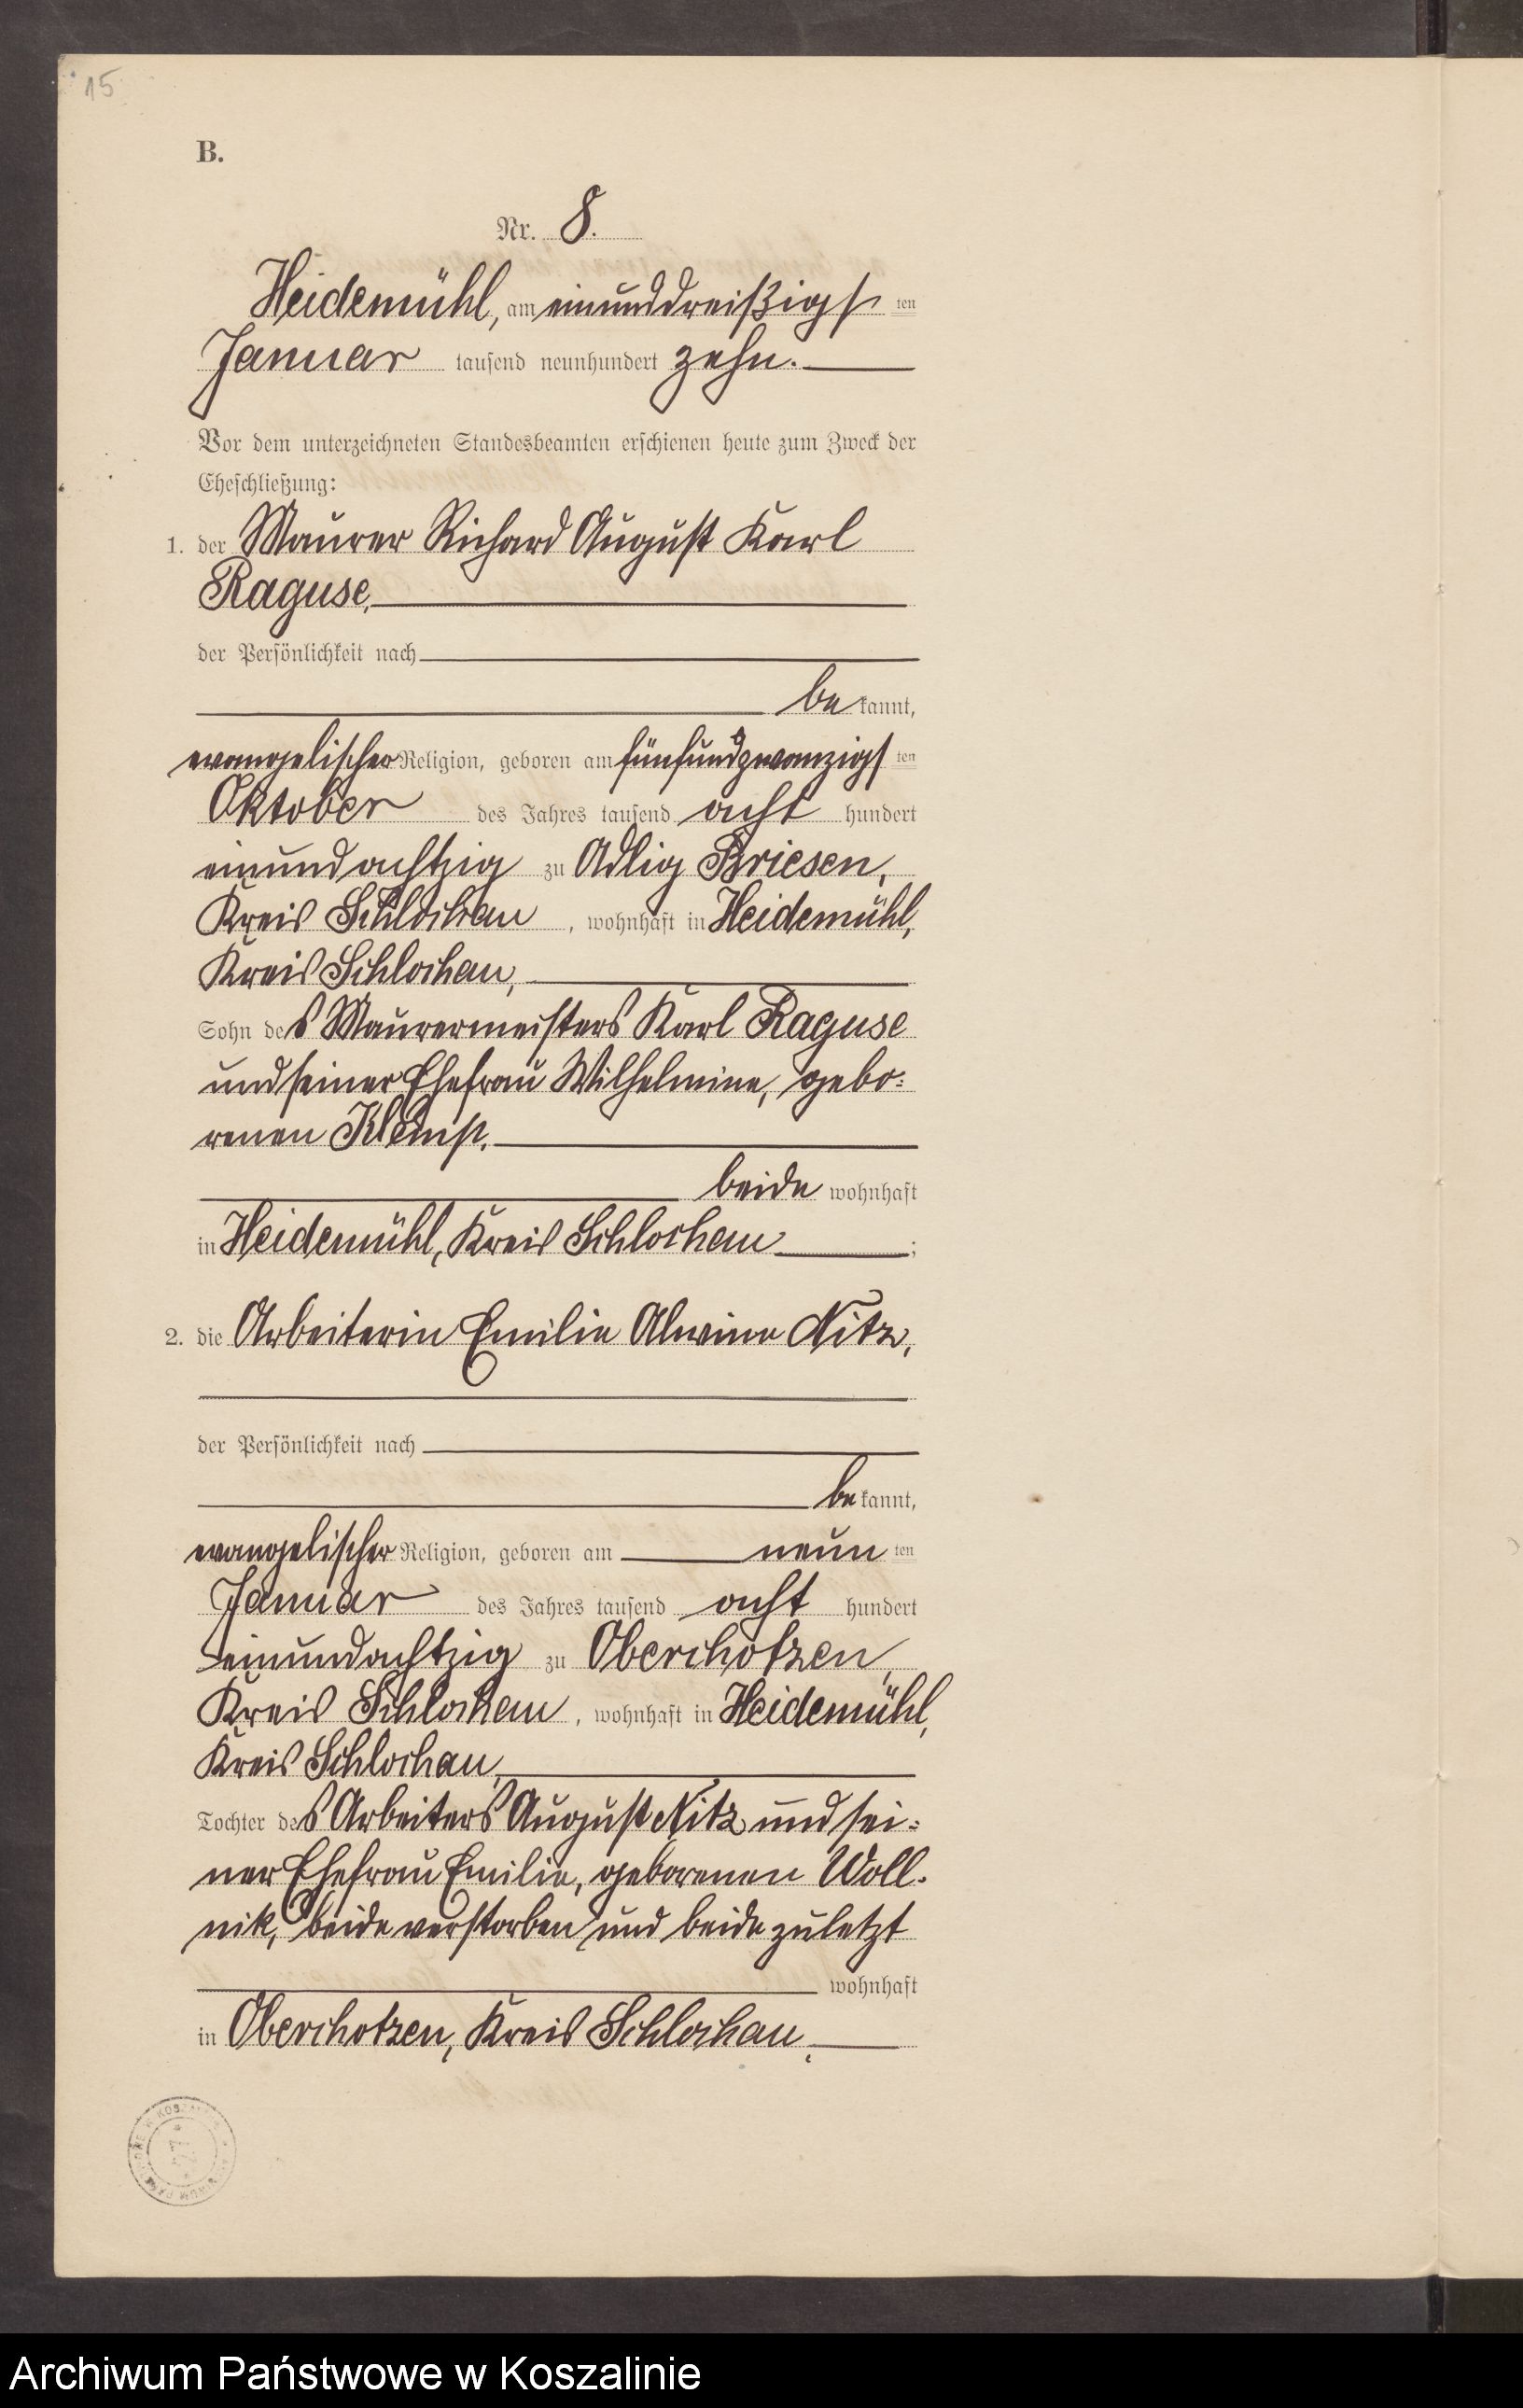 15
B.
Nr. 8.
Heidemühl, am einunddreißigsten
Januar tausend neunhundert zehn.
Vor dem unterzeichneten Standesbeamten erschienen heute zum Zweck der
Eheschließung:
1. der Maurer Richard August Karl
Raguse,
der Persönlichkeit nach
bekannt,
evangelischer Religion, geboren am fünfundzwanzigsten
Oktober des Jahres tausend acht hundert
einundachtzig zu Adlig Briesen,
Kreis Schlochau, wohnhaft in Heidemühl,
Kreis Schlochau,
Sohn des Maurermeisters Karl Raguse
und seiner Ehefrau Wilhelmine, gebo-
renen
beide wohnhaft
in Heidemühl, Kreis Schlochau;
2. die Arbeiterin Emilie Alwine Nitz,
der Persönlichkeit nach
bekannt,
evangelischer Religion, geboren am neunten
Januar des Jahres tausend acht hundert
einundachtzig zu Oberchotzen,
Kreis Schlochau, wohnhaft in Heidemühl,
Kreis Schlochau,
Tochter des Arbeiters August Nitz und sei-
ner Ehefrau Emilie, geborenen Woll-
nik, beide verstorben und beide zuletzt
wohnhaft
in Oberchotzen, Kreis Schlochau.
Archiwum Państwowe w Koszalinie